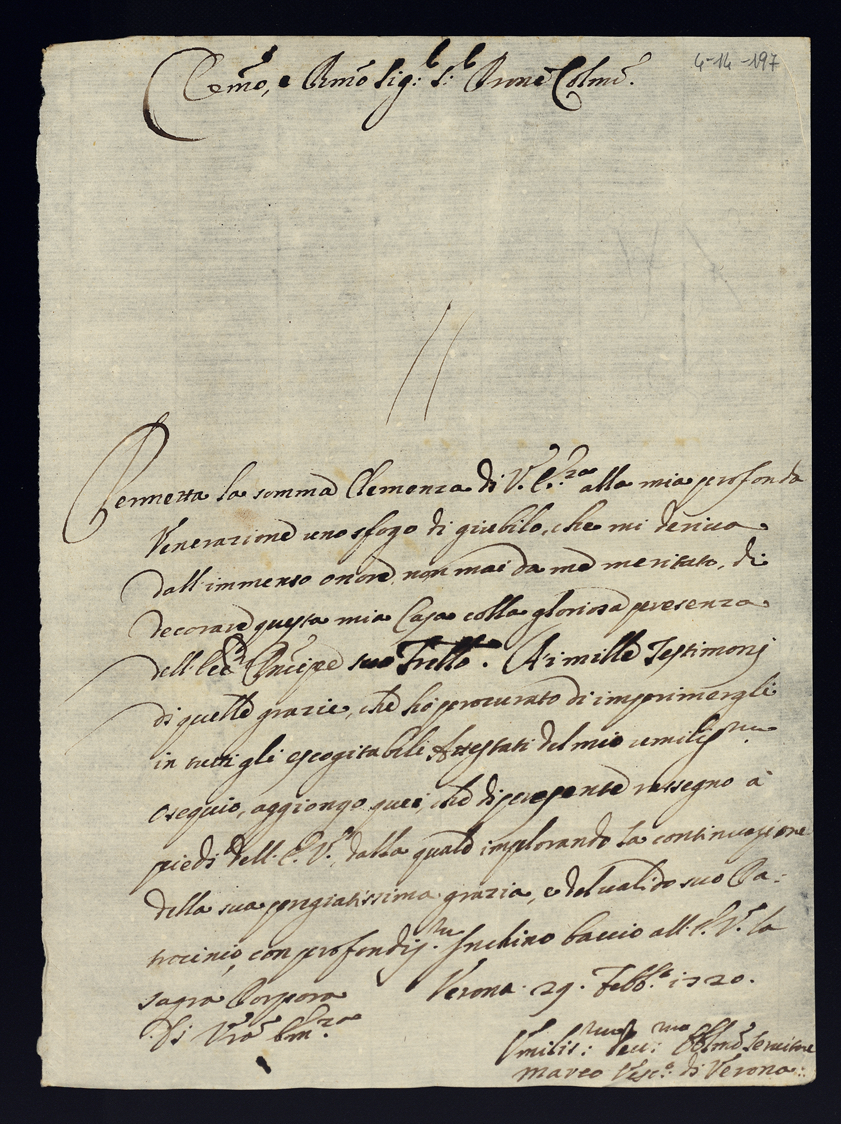 4-14-197
Em̃o, e Rm̃o Sig:r S:r Pron̄e Colm̃o.
Permetta la somma Clemenza di V. E.za alla mia profonda
Venerazione uno sfogo di giubilo, che mi deriva
dall'immenso onore non mai da me meritato, di
decorare questa mia Casa colla gloriosa presenza
dell'Ecc. Prñcipe suo Frello. A i mille Testimonj
di quelle grazie, che hò procurato di imprimergli
in tutti gli escogitabili Attestati del mio umiliss.mo
osequio, aggiongo quei, che di presente rassegno a'
piedi dell'E. V., dalla quale implorando la continuazione
della sua pregiatissima grazia, e del valido suo Pa:
trocinio, con profondiss.mo Inchino baccio all'E. V. la
sagra Porpora Verona. 29. Febb.o 1720.
Di Vrã Em.za
Umilis:mo Dev:mo Obblmõ Servitore
Marco Vesc.o di Verona.